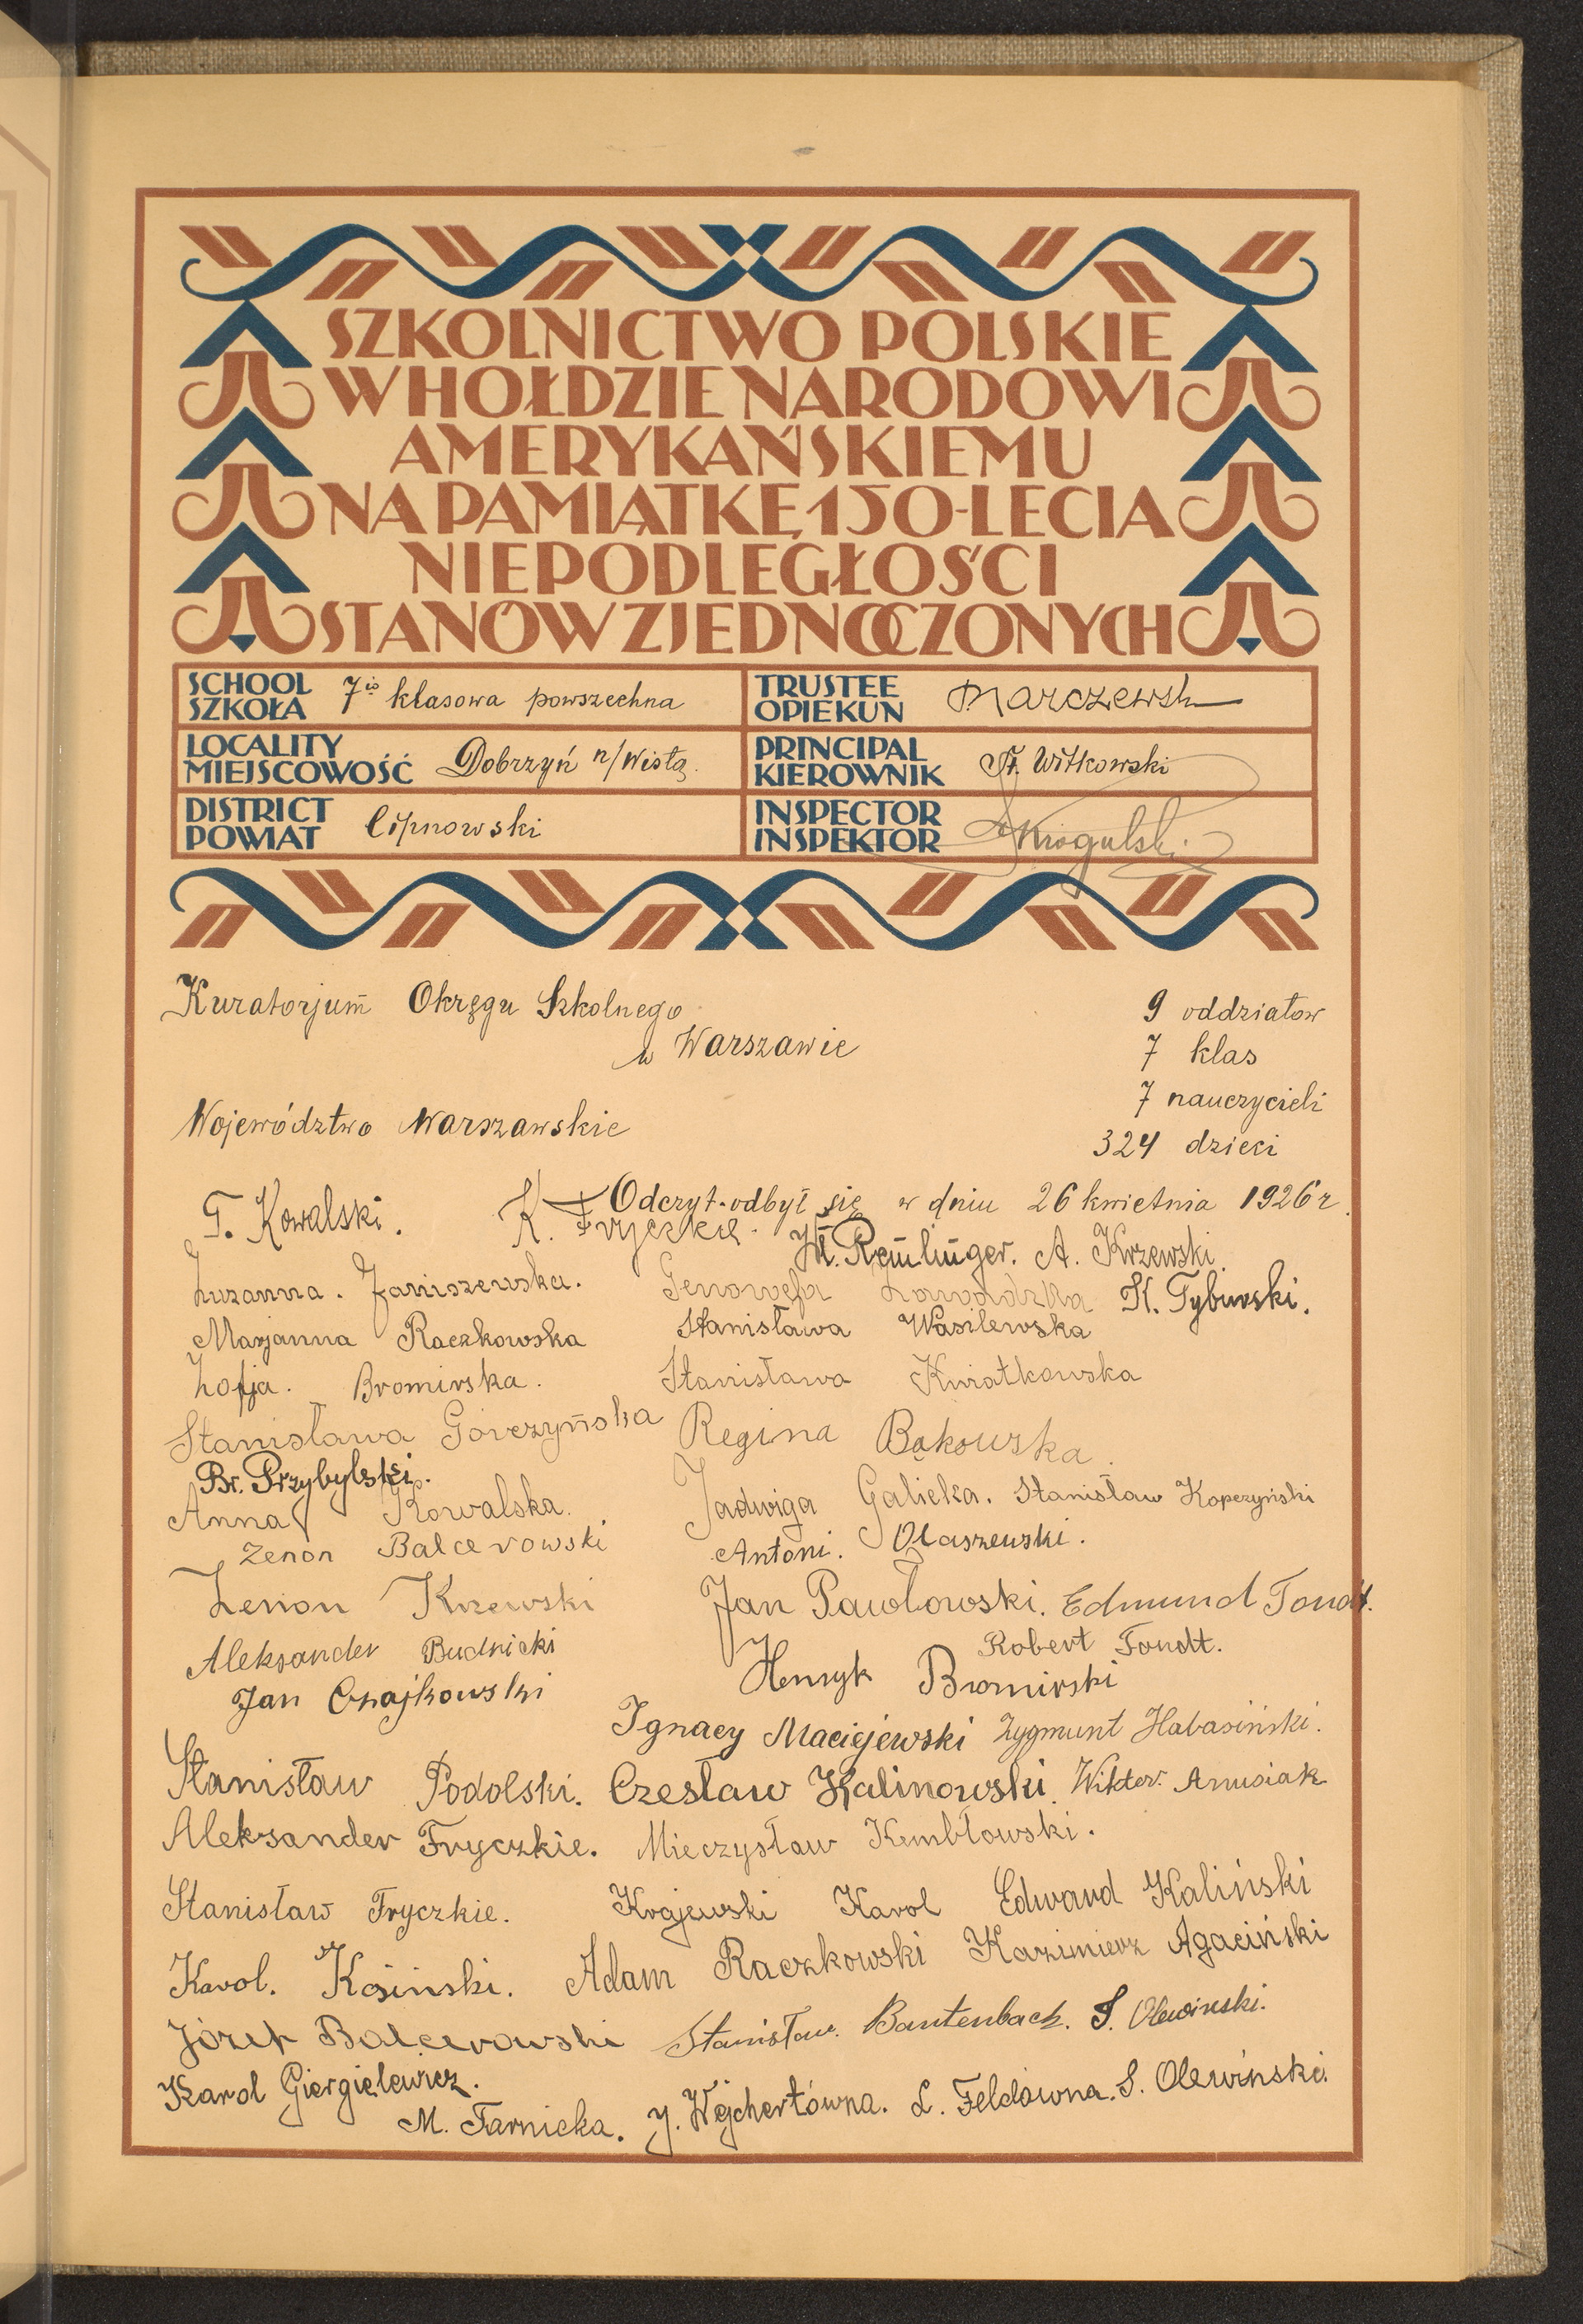 SZKOLNICTWO POLSKIE
W HOŁDZIE NARODOWI
AMERYKAŃSKIEMU
NA PAMIĄTKĘ 150-LECIA
NIEPODLEGŁOŚCI
STANÓW ZJEDNOCZONYCH
SCHOOL
SZKOŁA 7io klasowa powszechna
TRUSTEE
OPIEKUN Marczewski
LOCALITY
MIEJSCOWOŚĆ Dobrzyń n/Wisłą.
PRINCIPAL
KIEROWNIK Fr. Witkowski
DISTRICT
POWIAT Lipnowski
INSPECTOR
INSPEKTOR
Kuratorjum Okręgu Szkolnego
w Warszawie
9 oddziałów
7 klas
7 nauczycieli
324 dzieci
Województwo Warszawskie
Odczyt odbył się w dniu 26 kwietnia 1926 r.
T. Kowalski. K. Fryczkie. Wł. Remlinger. A. Krzewski.
Zuzanna. Janiszewska. Genowefa Zawadzka K. Tyburski.
Marjanna Raczkowska Stanisława Wasilewska
Zofja. Bromirska. Stanisława Kwiatkowska
Stanisława Górczyńska Regina Bąkowska.
Br. Przybylski.
Anna Kowalska. Jadwiga Galicka. Stanisław Kopczyński
Zenon Balcerowski Antoni. Olaszewski.
Zenon Krzewski Jan Pawłowski. Edmund Fondt.
Aleksander Budnicki Robert Fondt.
Jan Czajkowski Henryk Bromirski
Ignacy Maciejewski Zygmunt Habasiński.
Stanisław Podolski. Czesław Kalinowski. Wiktor. Anusiak
Aleksander Fryczkie. Mieczysław Kembłowski.
Stanisław Fryczkie. Krajewski Karol Edward Kaliński
Karol. Kosinski. Adam Raczkowski Kazimierz Agaciński
Józef Balcerowski Stanisław. Bautenbach. S. Olewinski.
Karol Giergielewicz.
M. Tarnicka. J. Wejchertówna. L. Feldówna. S. Olewinski.